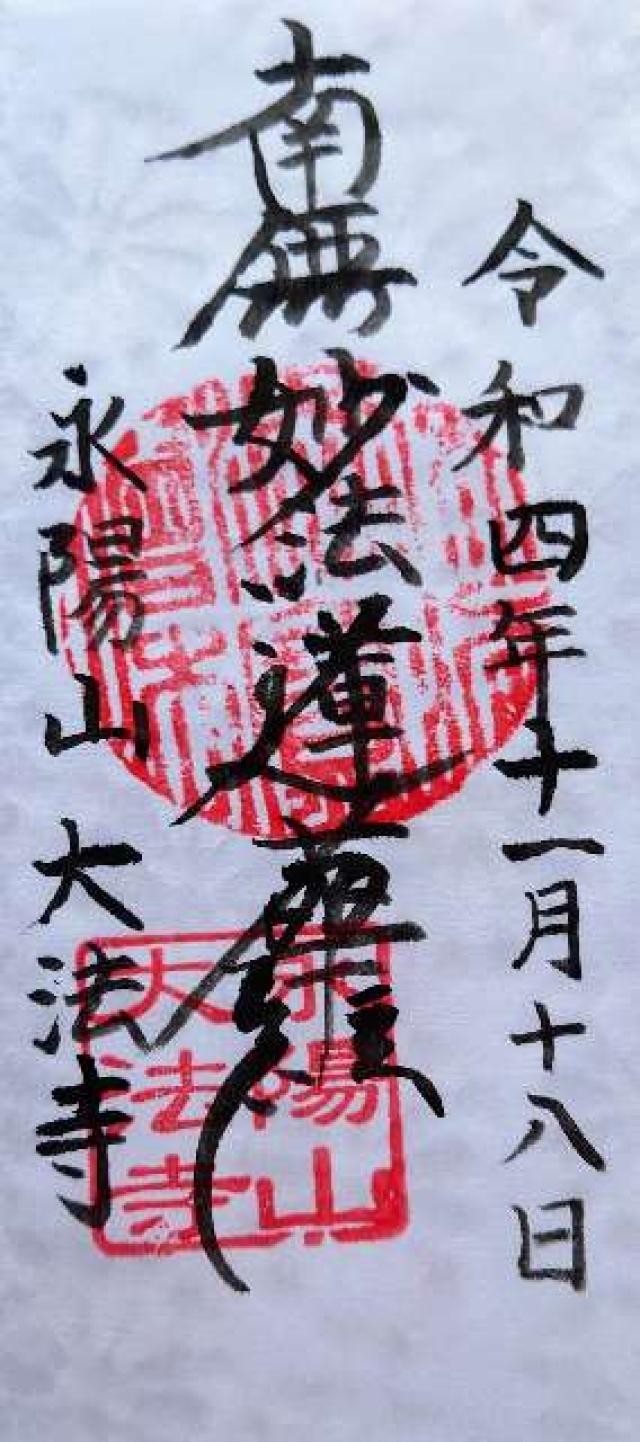 令和四年十一月十八日
南無妙法蓮華経
永陽山 大法寺
永陽山
大法寺